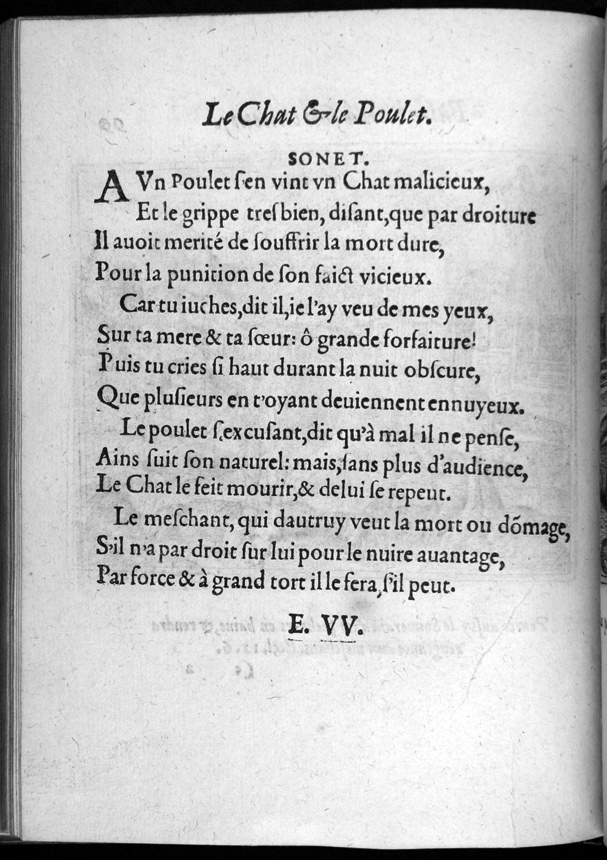 Le Chat & le Poulet.
SONET.
A Vn Poulet ſ'en vint vn Chat malicieux,
Et le grippe treſbien, diſant, que par droiture
Il auoit merité de ſouffrir la mort dure,
Pour la punition de ſon faict vicieux.
Car tu iuches, dit il, ie l'ay veu de mes yeux,
Sur ta mere & ta ſœur: ô grande forfaiture!
Puis tu cries ſi haut durant la nuit obſcure,
Que pluſieurs en t'oyant deuiennent ennuyeux.
Le poulet ſ'excuſant, dit qu'à mal il ne penſe,
Ains ſuit ſon naturel: mais, ſans plus d'audience,
Le Chat le feit mourir, & de lui ſe repeut.
Le meſchant, qui dautruy veut la mort ou dõmage,
S'il n'a par droit ſur lui pour le nuire auantage,
Par force & à grand tort il le fera, ſ'il peut.
E. VV.